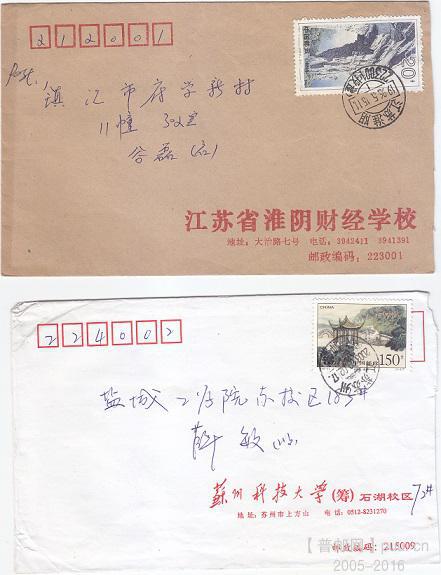 212001
镇江市府学新村
11幢 302室
江苏省淮阴财经学校
地址：大治路七号 电话：3942411 3941391
邮政编码：223001
224002
CHINA
中国邮政 150分
盐城工学院东校区183#
薛敏
苏州科技大学(筹)石湖校区 72#
地址：苏州市上方山 电话：0512-8231270
邮政编码：215009
【普邮网】
2005-2016